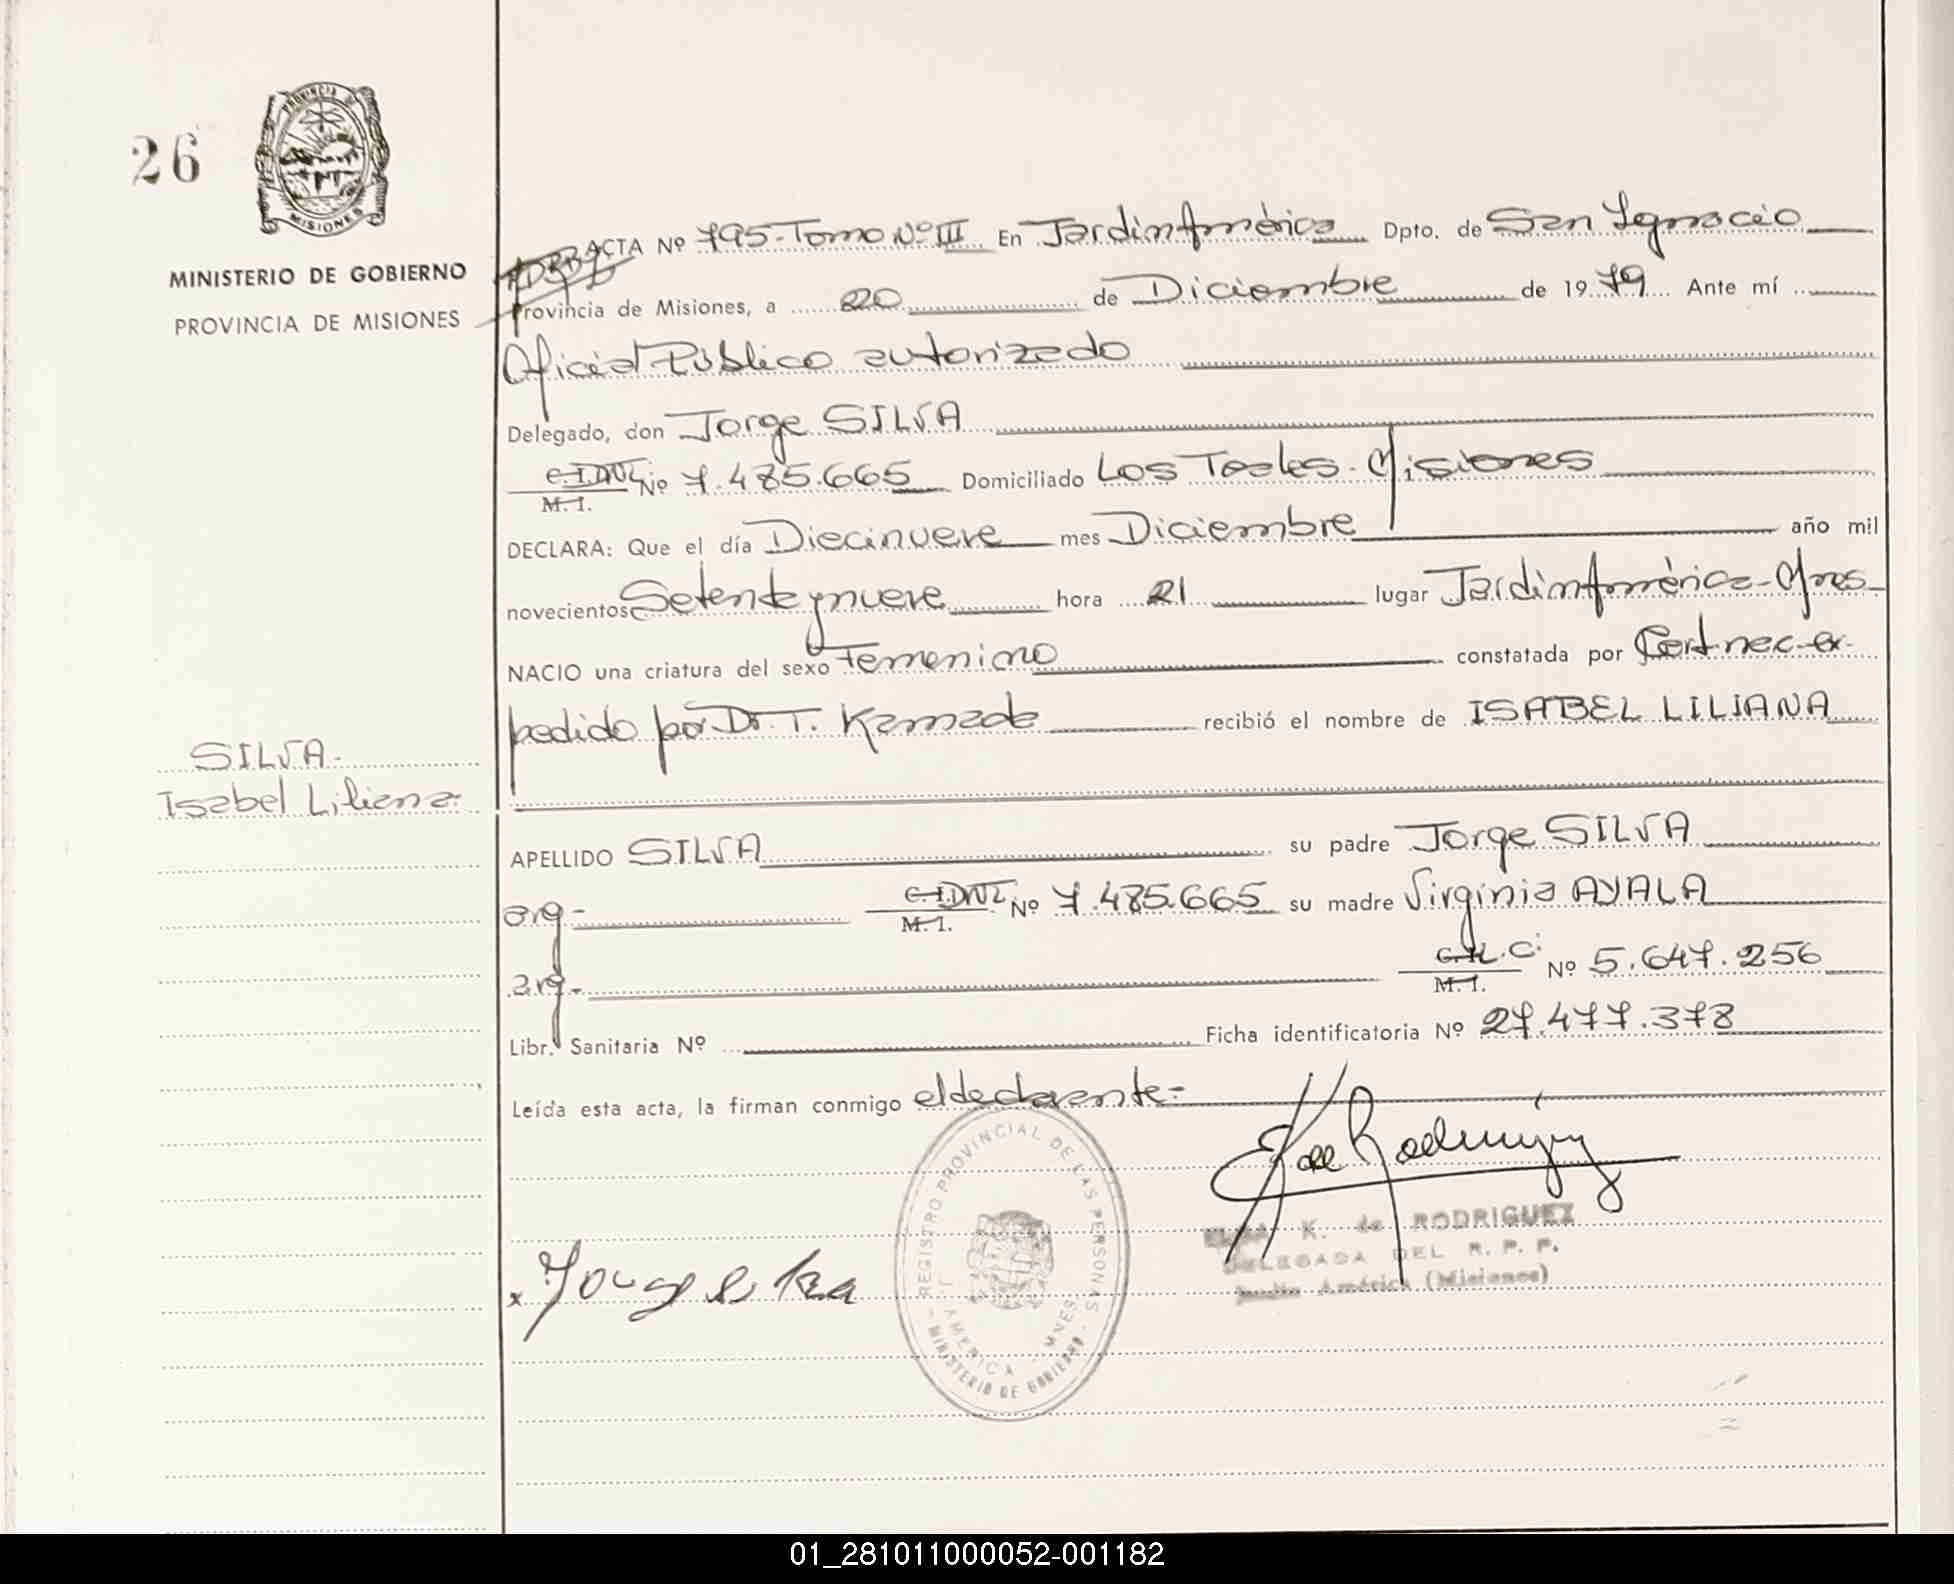 26
PROVINCIA DE
MISIONES
MINISTERIO DE GOBIERNO
PROVINCIA DE MISIONES
ACTA Nº 795-Tomo Nº III En Jardin América Dpto. de San Ignacio
Provincia de Misiones, a 20 de Diciembre de 1979 Ante mí
Oficial Público autorizado
Delegado, don Jorge SILVA
C.I.DNI. Nº 7.485.665 Domiciliado Los Teales. Misiones
M. I.
DECLARA: Que el día Diecinueve mes Diciembre año mil
novecientos Setenta y nueve hora 21 lugar Jardin América-Mnes-
NACIO una criatura del sexo Femenino constatada por Cert-nec-ex-
pedido por Dr. T. Kamada recibió el nombre de ISABEL LILIANA
SILVA-
Isabel Liliana.
APELLIDO SILVA su padre Jorge SILVA
arg- C.I.DNI. Nº 7.485.665 su madre Virginia AYALA
M. I.
arg- L.C. Nº 5.647.256
M. I.
Libr. Sanitaria Nº Ficha identificatoria Nº 27.477.378
Leída esta acta, la firman conmigo el declarante=
REGISTRO PROVINCIAL DE LAS PERSONAS
J. AMERICA - MNES.
MINISTERIO DE GOBIERNO
K. de RODRIGUEZ
DELEGADA DEL R. P. P.
Jardín América (Misiones)
x Jorge
01_281011000052-001182